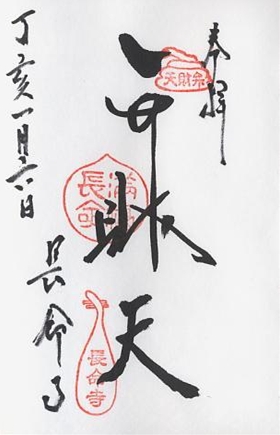 奉拝
弁財天
弁財天
丁亥一月六日
長命寺
長命寺